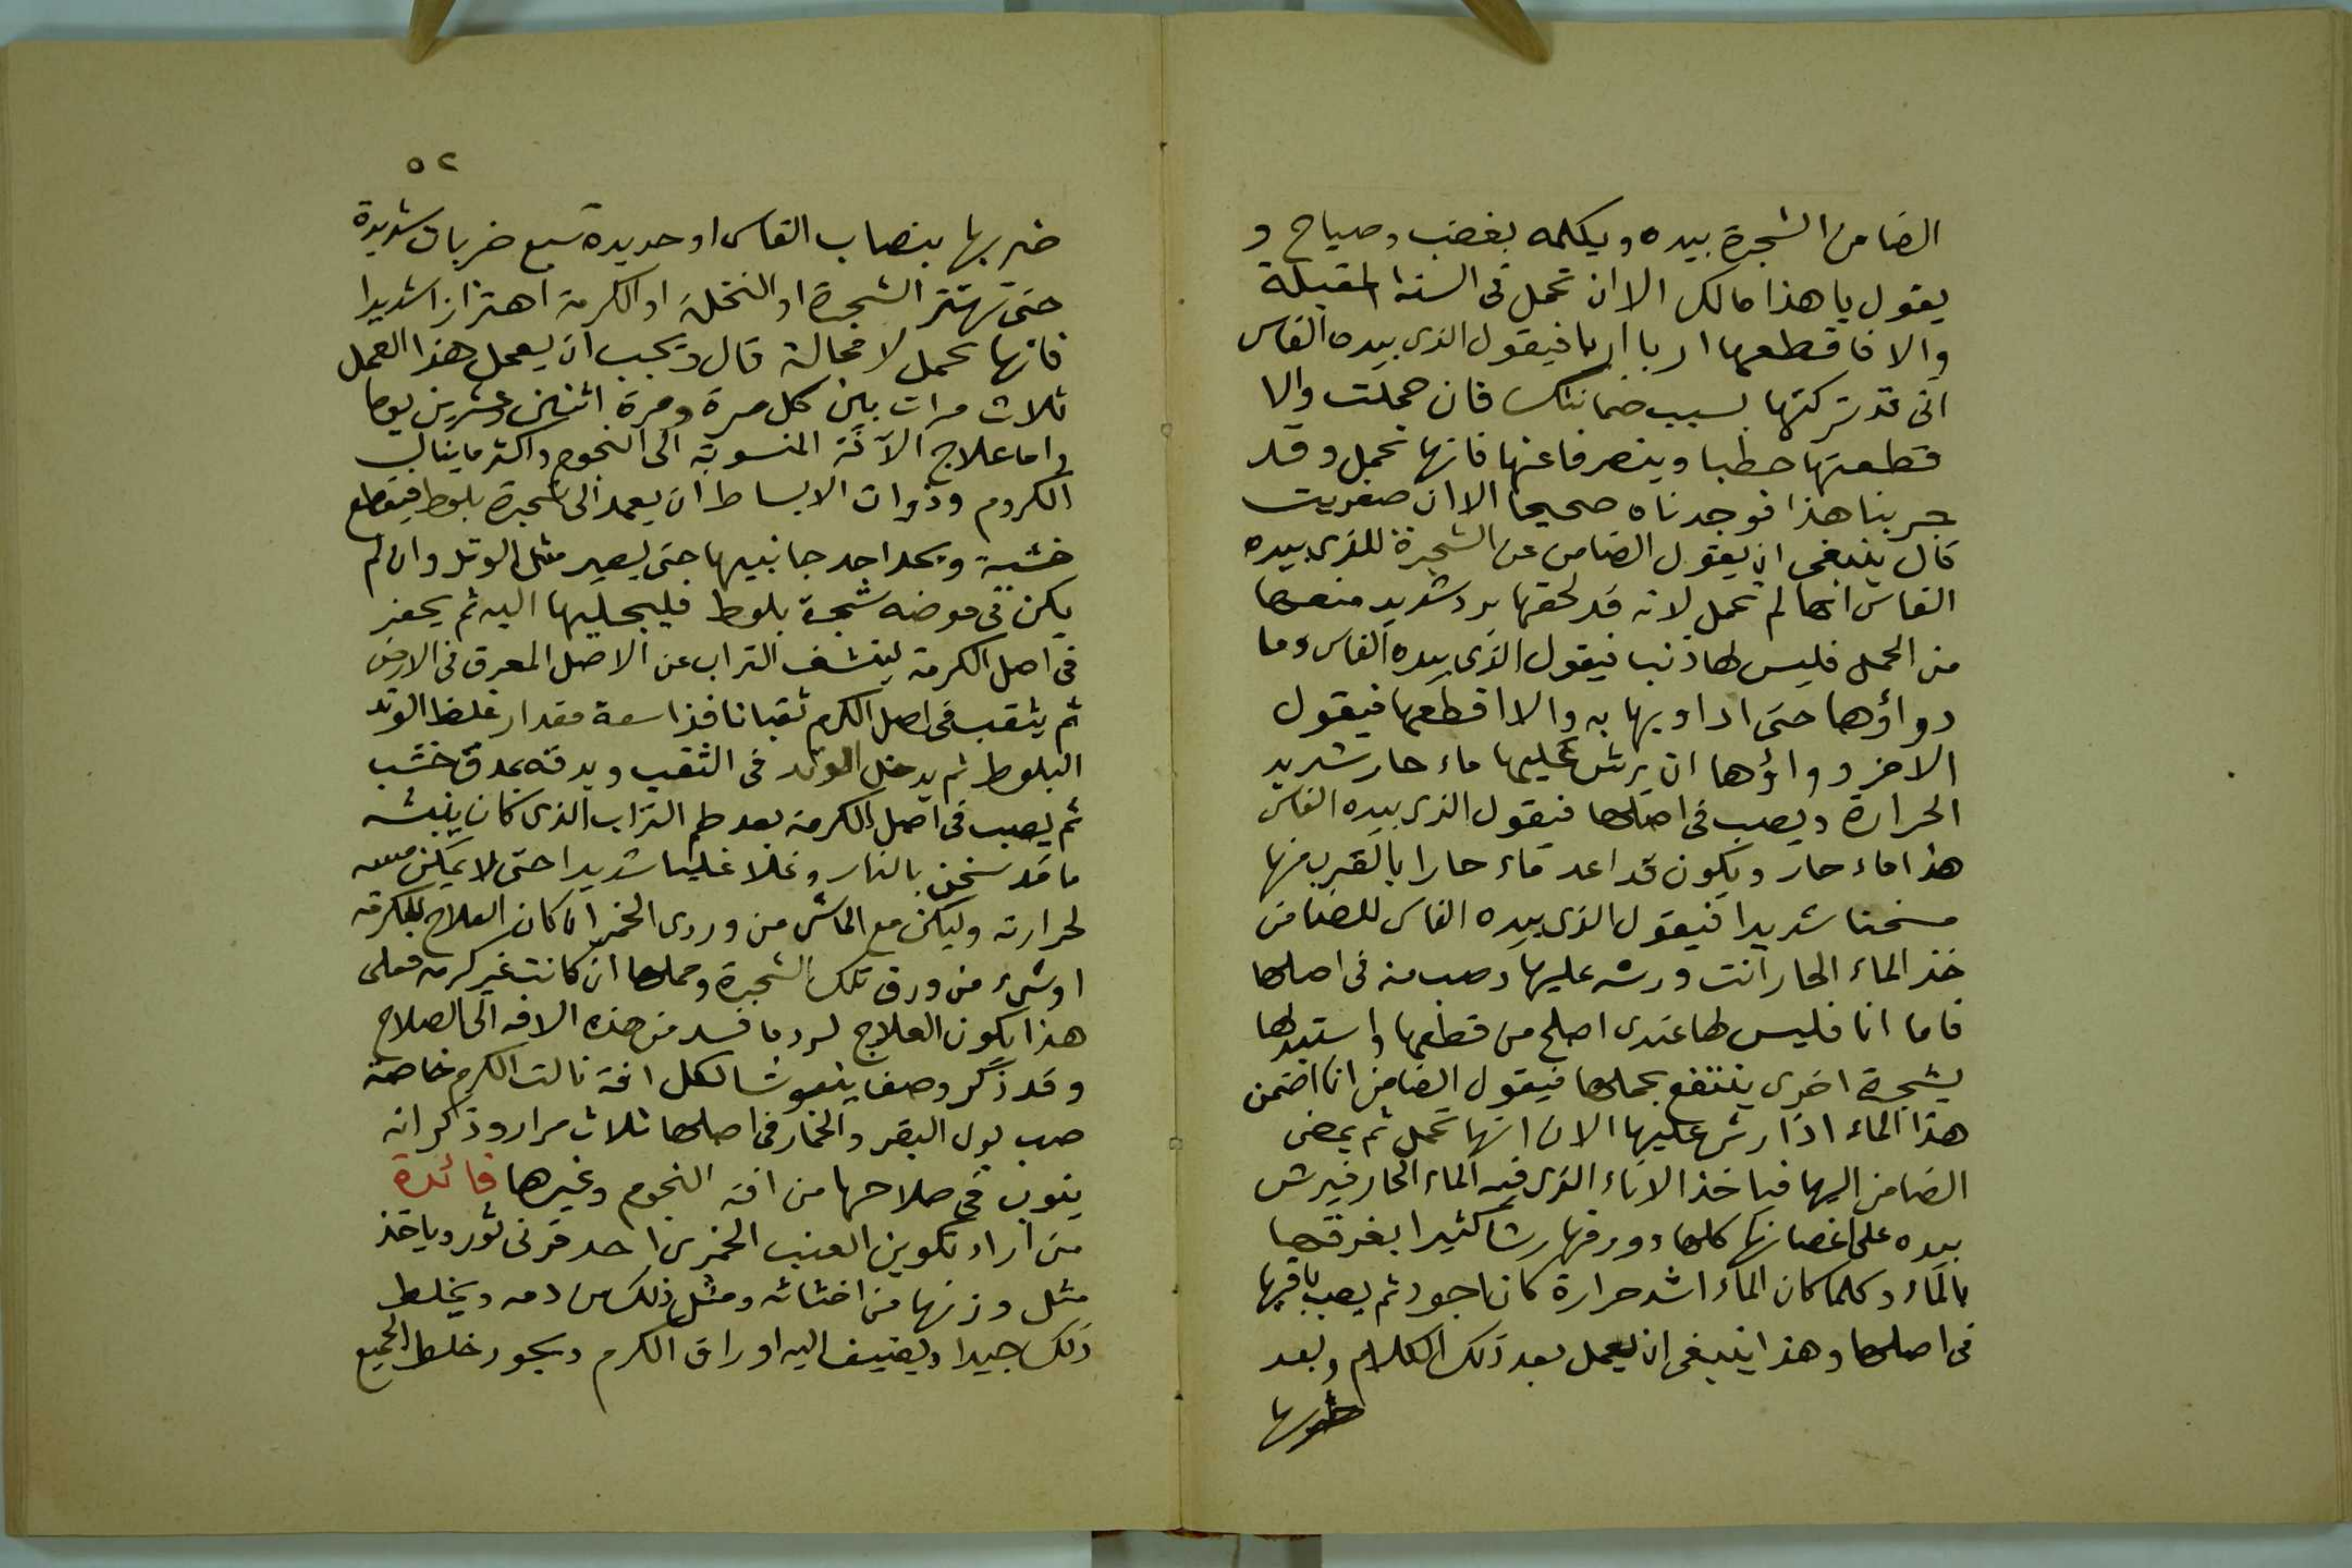 الضامن الشجرة بيده ويكلمه بغضب وصياح و
يقول يا هذا مالك الا ان تحمل فى السنة المقبلة
والا فاقطعها اربا اربا فيقول الذى بيده الفاس
انى قد تركتها بسبب ضمانتك فان حملت والا
قطعتها حطبا وينصرفا عنها فانها تحمل وقد
جربنا هذا فوجدناه صحيحا الا ان صغريت
قال ينبغى ان يقول الضامن عن الشجرة للذى بيده
الفاس انها لم تحمل لانه قد لحقها برد شديد منعها
من الحمل فليس لها ذنب فيقول الذى بيده الفاس وما
دواؤها حتى اداويها به والا اقطعها فيقول
الاخر دواؤها ان يرش عليها ماء حار شديد
الحرارة ويصب فى اصلها فيقول الذى بيده الفاس
هذا ماء حار ويكون قد اعد ماء حارا بالقرب منها
مسخنا شديدا فيقول الذى بيده الفاس للضامن
خذ الماء الحار انت ورشه عليها وصب منه فى اصلها
فاما انا فليس لها عندى اصلح من قطعها واستبدلها
بشجرة اخرى ينتفع بحملها فيقول الضامن انا اضمن
هذا الماء اذا رش عليها الان انها تحمل ثم يمضى
الضامن اليها فياخذ الاناء الذى فيه الماء الحار فيرش
بيده على اغصانها كلها وورقها رشا كثيرا بغرقها
بالماء وكلما كان الماء اشد حرارة كان اجود ثم يصب باقيها
فى اصلها وهذا ينبغى ان يعمل بعد ذلك الكلام وبعد
ضربها
٥٢
ضربها بنصاب الفاس او حديدة سبع ضربات شديدة
حتى تهتز الشجرة او النخلة او الكرمة اهتزازا شديدا
فانها تحمل لا محالة قال ويجب ان يعمل هذا العمل
ثلاث مرات بين كل مرة ومرة اثنين وعشرين يوما
واما علاج الآفة المنسوبة الى النجوم واكثر ما ينال
الكروم وذوات الابساط ان يعمد الى شجرة بلوط فيقطع
خشبة ويحد احد جانبيها حتى يصير مثل الوتد وان لم
يكن فى موضعه شجرة بلوط فليجلبها اليه ثم يحفر
فى اصل الكرمة لينشف التراب عن الاصل المعرق فى الارض
ثم يثقب فى اصل الكرم ثقبا نافذا سعة مقدار غلظ الوتد
البلوط ثم يدخل الوتد فى الثقب ويدقه بمدق خشب
ثم يصب فى اصل الكرمة بعد طم التراب الذى كان ينبشه
ما قد سخن بالنار وغلا غليا شديدا حتى لا يمكن مسه
لحرارته وليكن مع الماشى من وردى الخمر ان كان العلاج للكرمة
او شىء من ورق تلك الشجرة وحملها ان كانت غير كرمة فعلى
هذا يكون العلاج لرد ما فسد من هذه الافه الى الصلاح
وقد ذكر وصفا ينبوشا لكل افة نالت الكرم خاصة
صب بول البقر والخمار فى اصلها ثلاث مرار وذكر انه
ينوب فى صلاحها من افة النجوم وغيرها فائدة
من اراد تكوين العنب الخمرى احد قرنى ثور وياخذ
مثل وزنها من اخثائه ومثل ذلك من دمه ويخلط
ذلك جيدا ويضيف اليه اوراق الكرم ويجود خلط الجميع